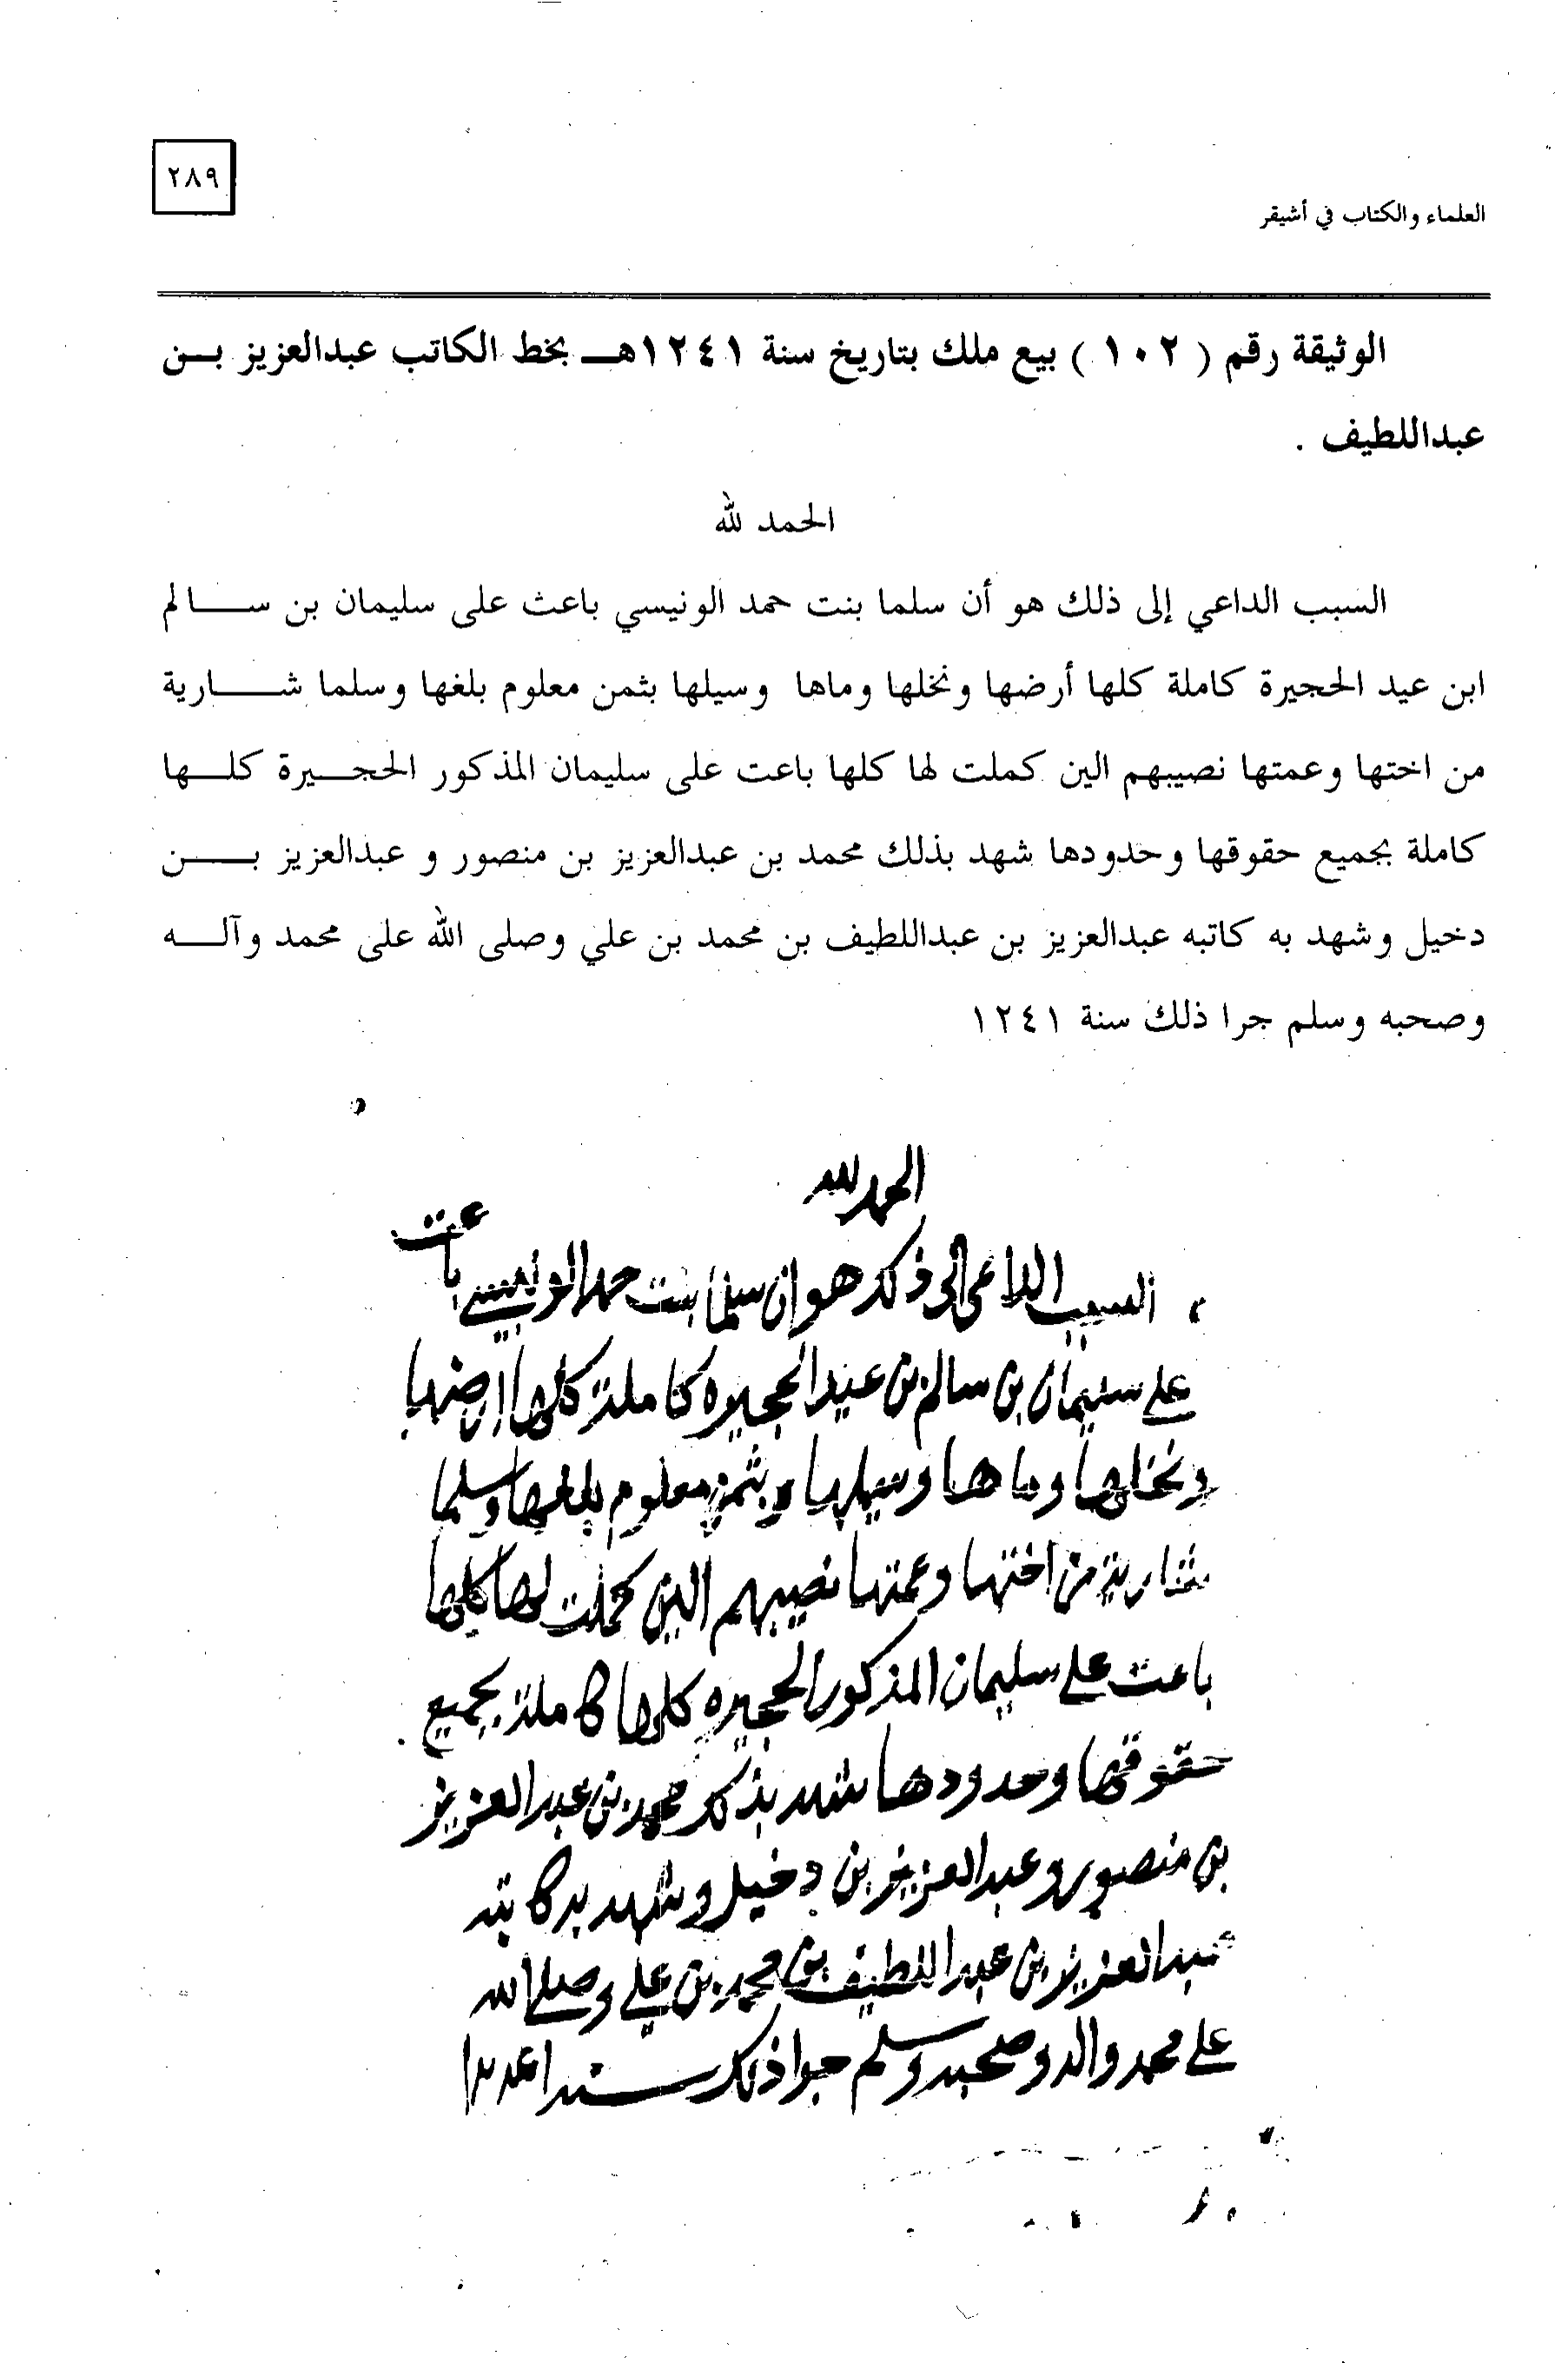 ٢٨٩
العلماء والكتاب في أشيقر
الوثيقة رقم ( ١٠٢ ) بيع ملك بتاريخ سنة ١٢٤١هـ بخط الكاتب عبدالعزيز بن
عبداللطيف .
الحمد لله
السبب الداعي إلى ذلك هو أن سلما بنت حمد الونيسي باعث على سليمان بن سالم
ابن عيد الحجيرة كاملة كلها أرضها ونخلها وماها وسيلها بثمن معلوم بلغها وسلما شارية
من اختها وعمتها نصيبهم الين كملت لها كلها باعت على سليمان المذكور الحجيرة كلها
كاملة بجميع حقوقها وحدودها شهد بذلك محمد بن عبدالعزيز بن منصور و عبدالعزيز بن
دخيل وشهد به كاتبه عبدالعزيز بن عبداللطيف بن محمد بن علي وصلى الله على محمد وآله
وصحبه وسلم جرا ذلك سنة ١٢٤١
الحمد لله
السبب الداعي الى ذلك هو ان سلما بنت حمد الونيسي باعت
على سليمان بن سالم بن عيد الحجيره كاملة كلها ارضها
ونخلها وماها وسيلها بثمن معلوم بلغها وسلما
شارية من اختها وعمتها نصيبهم الين كملت لها كلها
باعت على سليمان المذكور الحجيره كلها كاملة بجميع
حقوقها وحدودها شهد بذلك محمد بن عبد العزيز
بن منصور وعبد العزيز بن دخيل وشهد به كاتبه
عبد العزيز بن عبد اللطيف بن محمد بن علي وصلى الله
على محمد واله وصحبه وسلم جرا ذلك سنة ١٢٤١